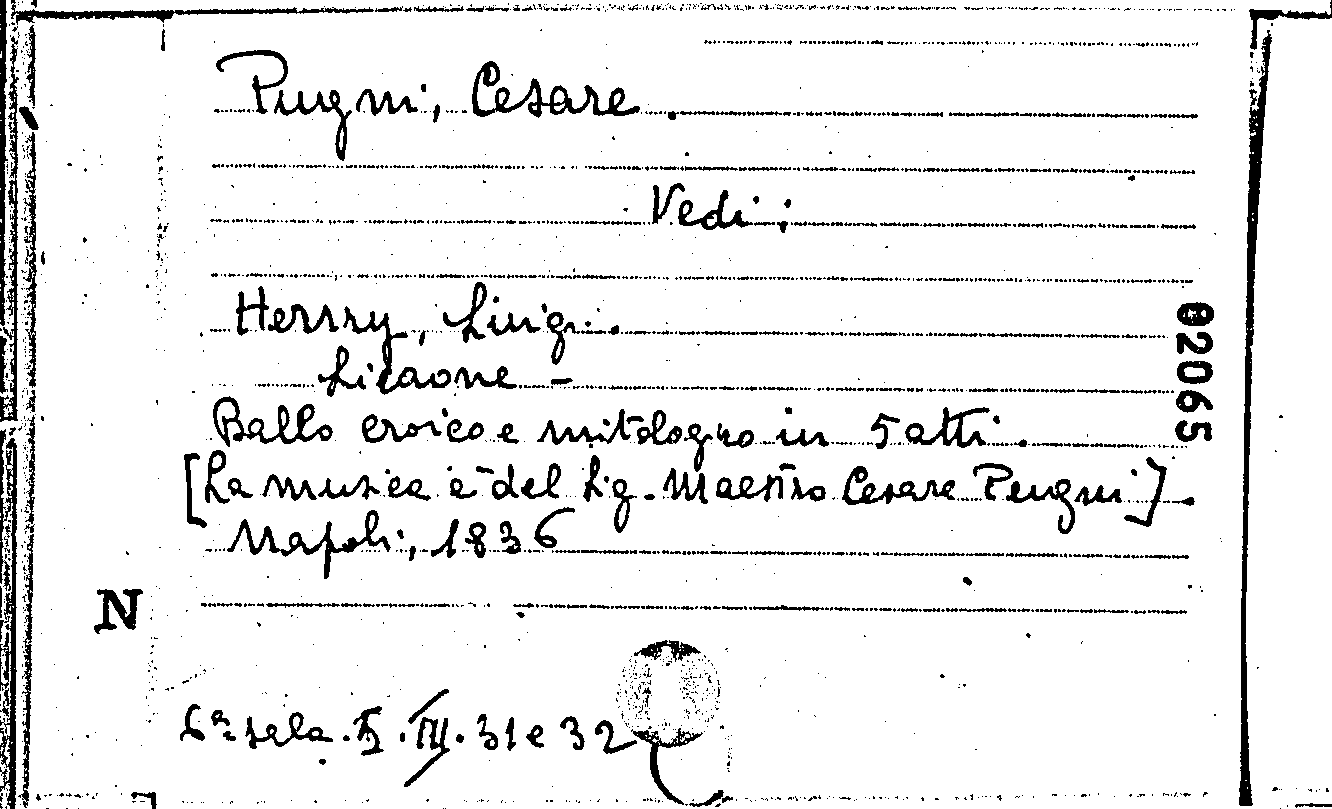 Pugni, Cesare.
Vedi:
Henry, Luigi.
Licaone -
Ballo eroico e mitologico in 5 atti.
[La musica è del Sig. Maestro Cesare Pugni].
Napoli, 1836
02065
N
6ª sala. III. 31 e 32